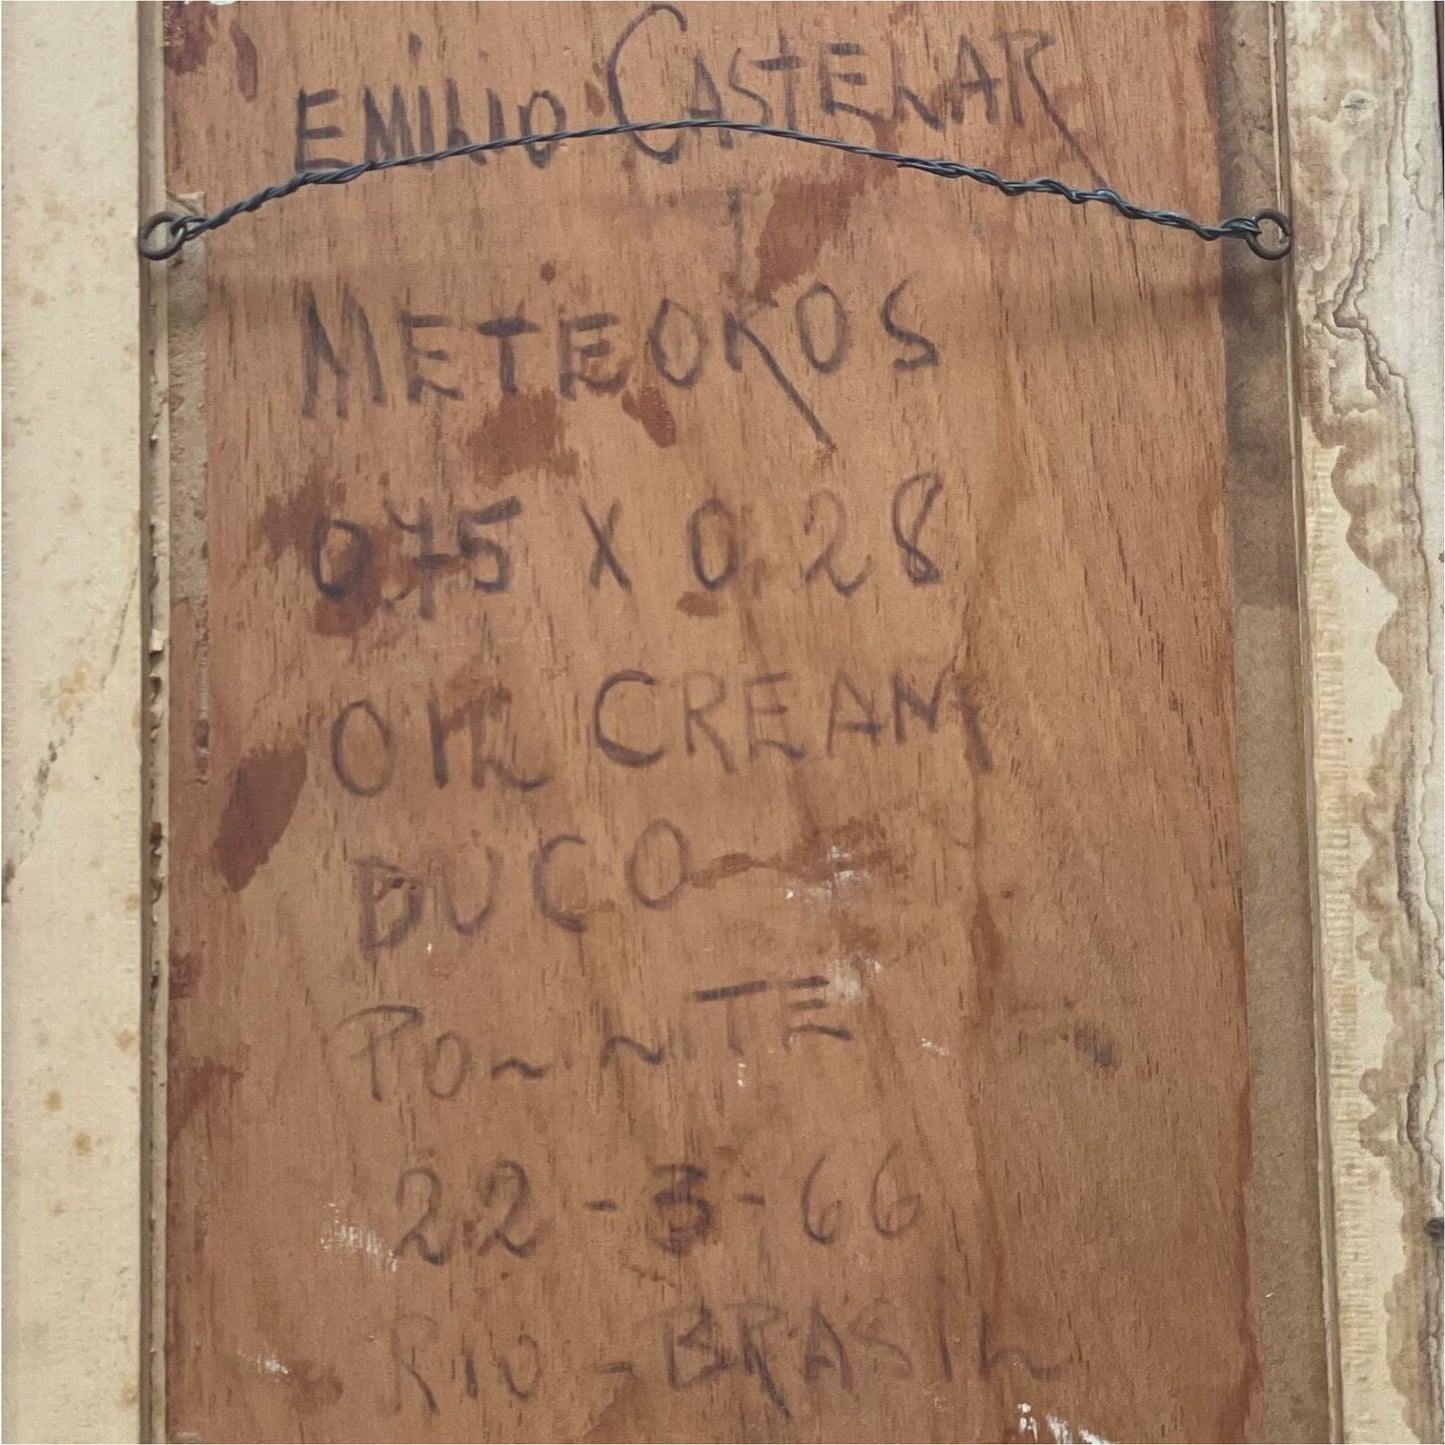 EMILIO CASTELAR
METEOROS
0,75 X 0,28
OIL CREAM
DUCO
22-3-66
RIO-BRASIL